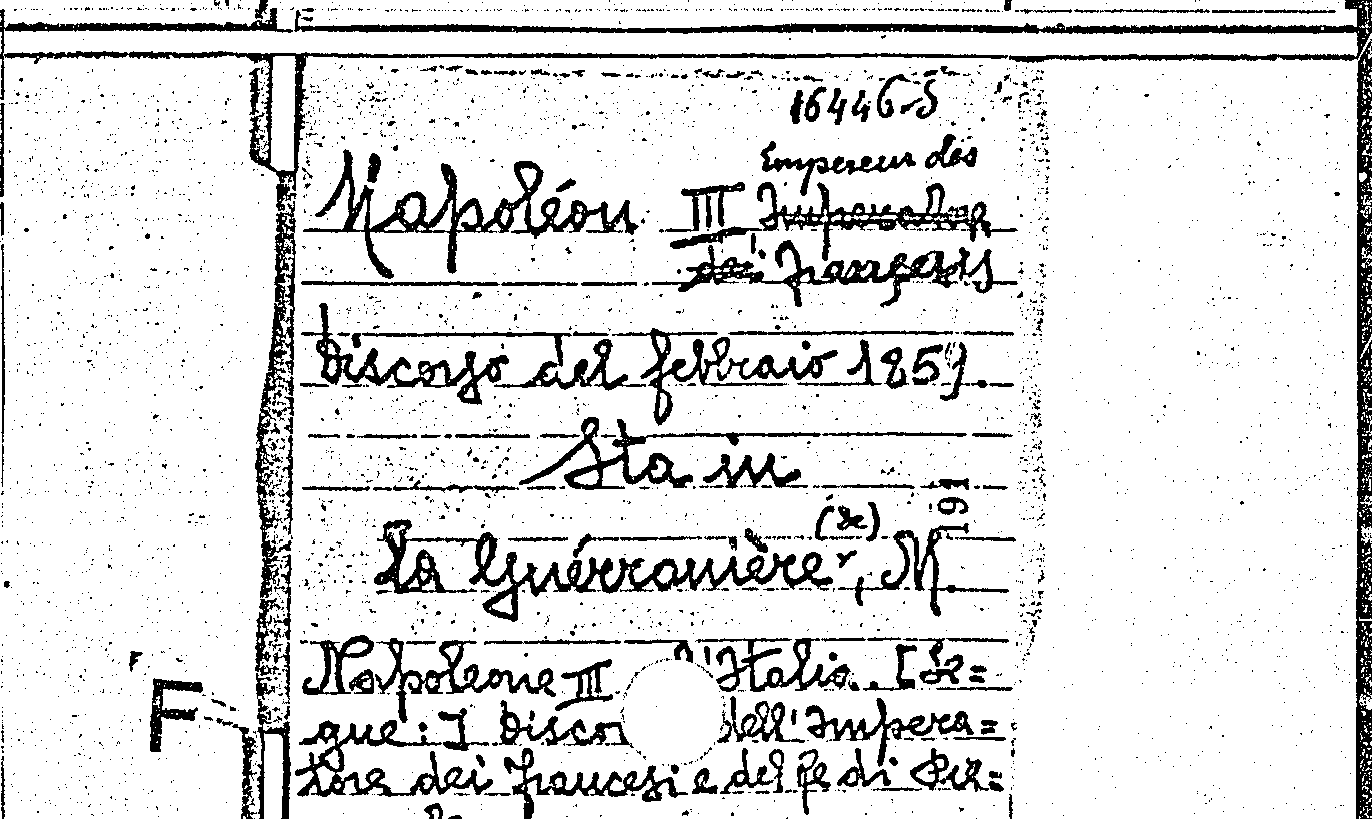 16446-S
Empereur des
Napoléon III Imperatore
dei français
Discorso del febbraio 1859.
Sta in
191
(de)
La Guérronière, M.
Napoleone III l'Italia. [Se=
F
gue: I dell'Impera=
F
tore dei francesi e del Re di Pie=